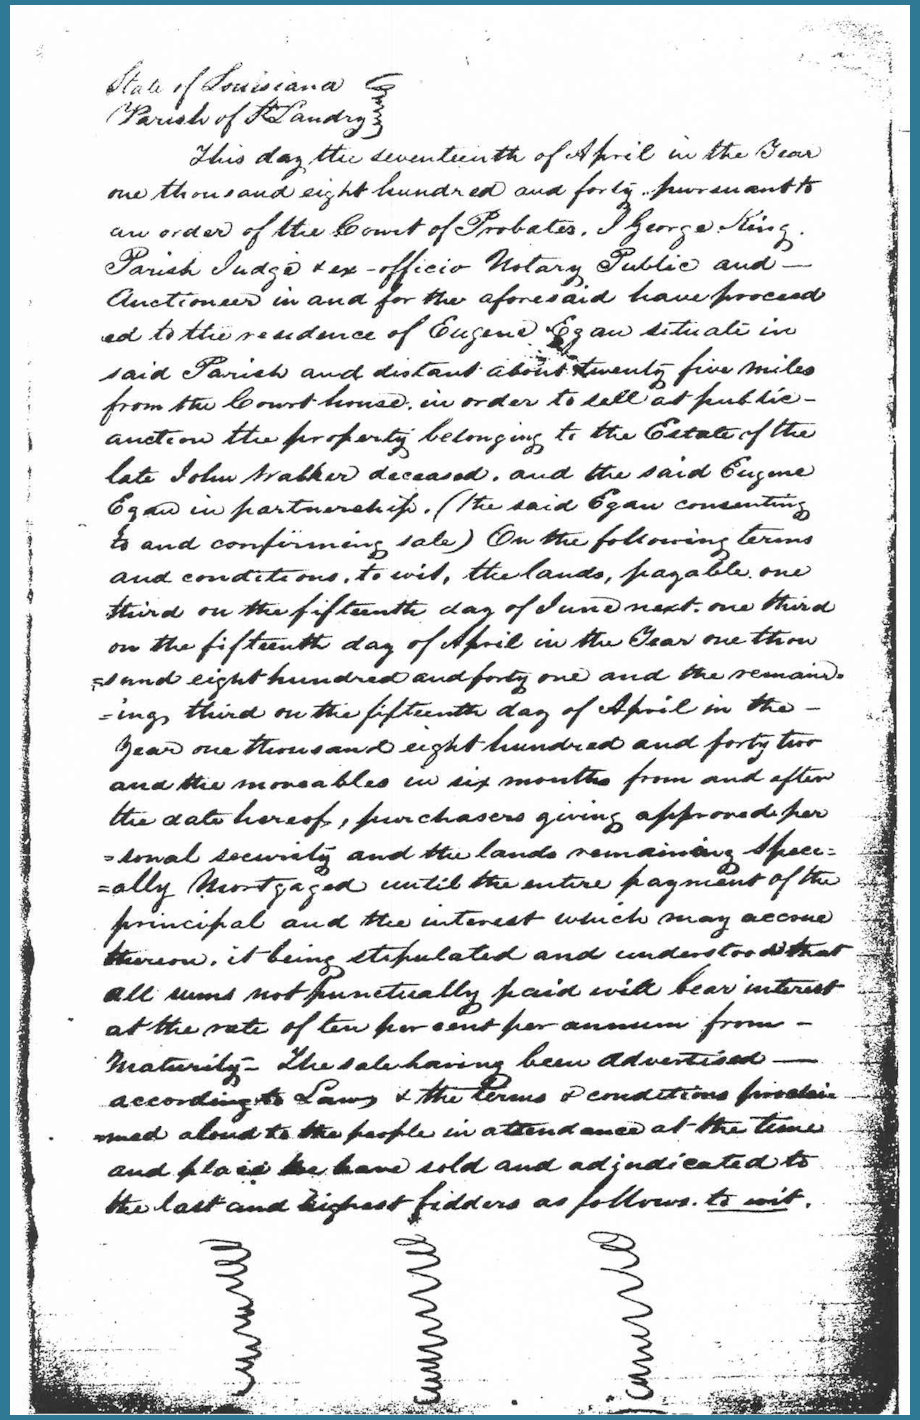 State of Louisiana
Parish of St Landry
This day the seventeenth of April in the Year
one thousand eight hundred and forty, pursuant to
an order of the Court of Probates, I George King.
Parish Judge & ex-officio Notary Public and —
Auctioneer in and for the aforesaid have proceed
ed to the residence of Eugene Egan situate in
said Parish and distant about twenty five miles
from the Court house, in order to sell at public -
auction the property belonging to the Estate of the
late John Walker deceased, and the said Eugene
Egan in partnership. (the said Egan consenting
to and confirming sale) On the following terms
and conditions, to wit, the lands, payable one
third on the fifteenth day of June next. one third
on the fifteenth day of April in the Year one thou
=sand eight hundred and forty one and the remain.
=ing third on the fifteenth day of April in the -
Year one thousand eight hundred and forty two
and the moveables in six months from and after
the date hereof, purchasers giving approved per
=sonal security and the lands remaining Speci=
=ally Mortgaged until the entire payment of the
principal and the interest which may accrue
thereon, it being stipulated and understood that
all sums not punctually paid will bear interest
at the rate of ten per cent per annum from -
Maturity - The sale having been advertised —
according to Law, & the terms & conditions proclai
=med aloud to the people in attendance at the time
and place have sold and adjudicated to
the last and highest bidders as follows. to wit.